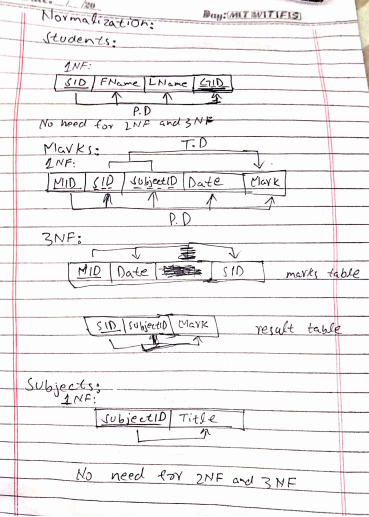 /20
Day: M T W T F S
Normalization:
Students:
1NF:
SID FName LName GID
P.D
No need for 2NF and 3NF
Marks:
T.D
1NF:
MID SID SubjectID Date Mark
P.D
3NF:
MID Date SID marks table
SID SubjectID Mark result table
Subjects:
1NF:
SubjectID Title
No need for 2NF and 3NF